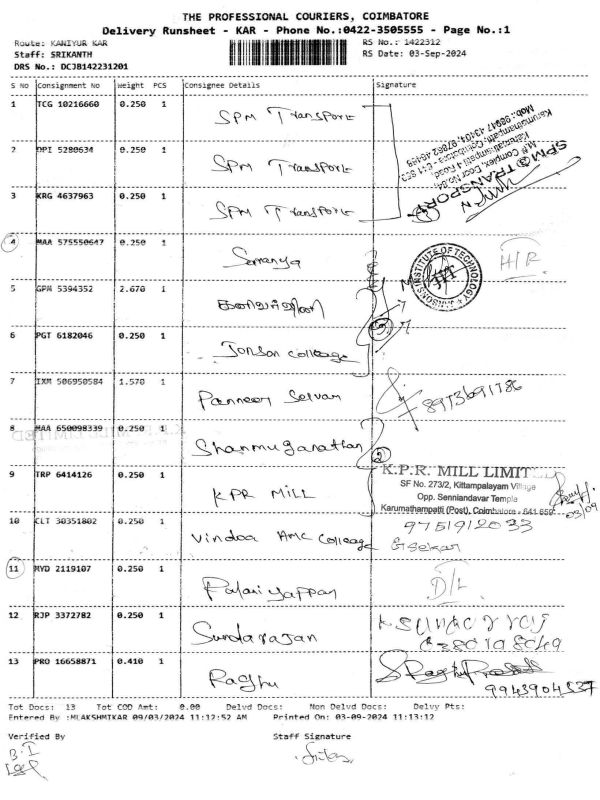 THE PROFESSIONAL COURIERS, COIMBATORE
Delivery Runsheet - KAR - Phone No.:0422-3505555 - Page No.:1
Route: KANIYUR KAR
RS No.: 1422312
Staff: SRIKANTH
RS Date: 03-Sep-2024
DRS No.: DCJB142231201
S No Consignment No Weight PCS Consignee Details Signature
1 TCG 10216660 0.250 1 SPM Transport
2 DPI 5280634 0.250 1 SPM Transport
3 KRG 4637963 0.250 1 SPM Transport
SPM TRANSPORT
M.P. Complex, Door No.8A,
Karumathampatti 4 Road
Karumathampatti, Coimbatore - 641 659
4 MAA 575550647 0.250 1 Sowmya H/R
INSTITUTE OF TECHNOLOGY
5 GPM 5394352 2.670 1
6 PGT 6182046 0.250 1 Jonson Colleage
3
7 IXM 506950584 1.570 1 Panneer Selvam 8973691786
8 MAA 650098339 0.250 1 Shanmuganathan
2
9 TRP 6414126 0.250 1 KPR MILL
K.P.R. MILL LIMITED
SF No. 273/2, Kittampalayam Village
Opp. Senniandavar Temple
Karumathampatti (Post), Coimbatore - 641 659
03/09
10 CLT 30351802 0.250 1 AMC Colleage 9751912033
Gsekar
11 MYD 2119107 0.250 1 Palaniyappan D/L
12 RJP 3372782 0.250 1 Sundarajan
13 PRO 16658871 0.410 1 Raghu
9943904537
Tot Docs: 13 Tot COD Amt: 0.00 Delvd Docs: Non Delvd Docs: Delvy Pts:
Entered By :MLAKSHMIKAR 09/03/2024 11:12:52 AM Printed On: 03-09-2024 11:13:12
Verified By Staff Signature